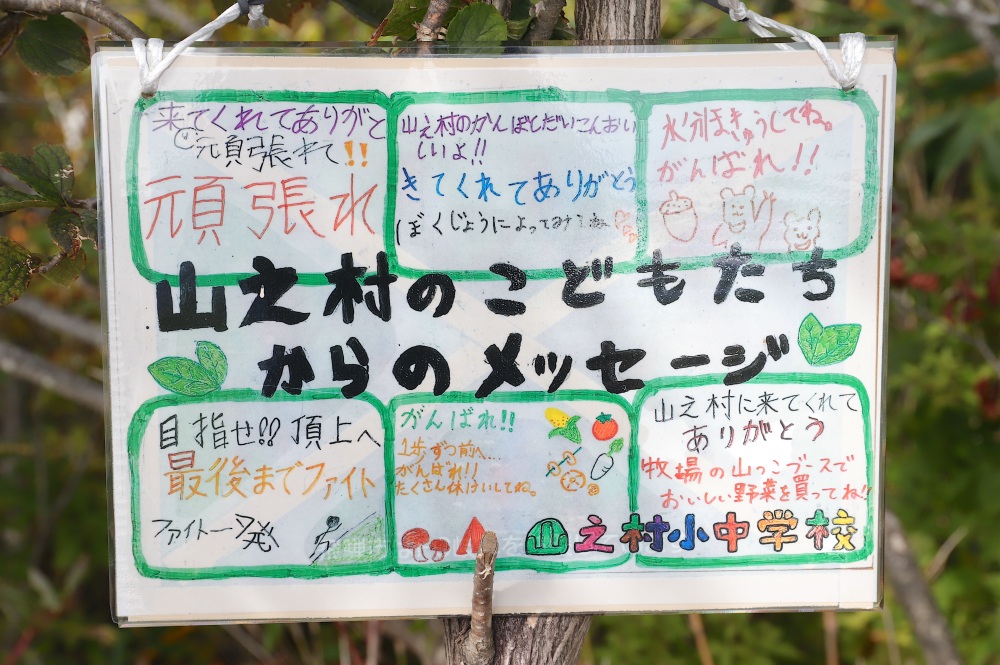 来てくれてありがと
う元気張れて!!
頑張れ
山之村のかんぼしだいこんおい
しいよ!!
きてくれてありがとう
(ぼくじょうによってみてね
水分ほきゅうしてね。
がんばれ!!
山之村のこどもたち
からのメッセージ
目指せ!!頂上へ
最後までファイト
ファイトー発
がんばれ!!
1歩ずつ前へ...
がんばれ!!
たくさん休けいしてね。
山之村に来てくれて
ありがとう
牧場の山っこブースで
おいしい野菜を買ってね!!
山之村小中学校